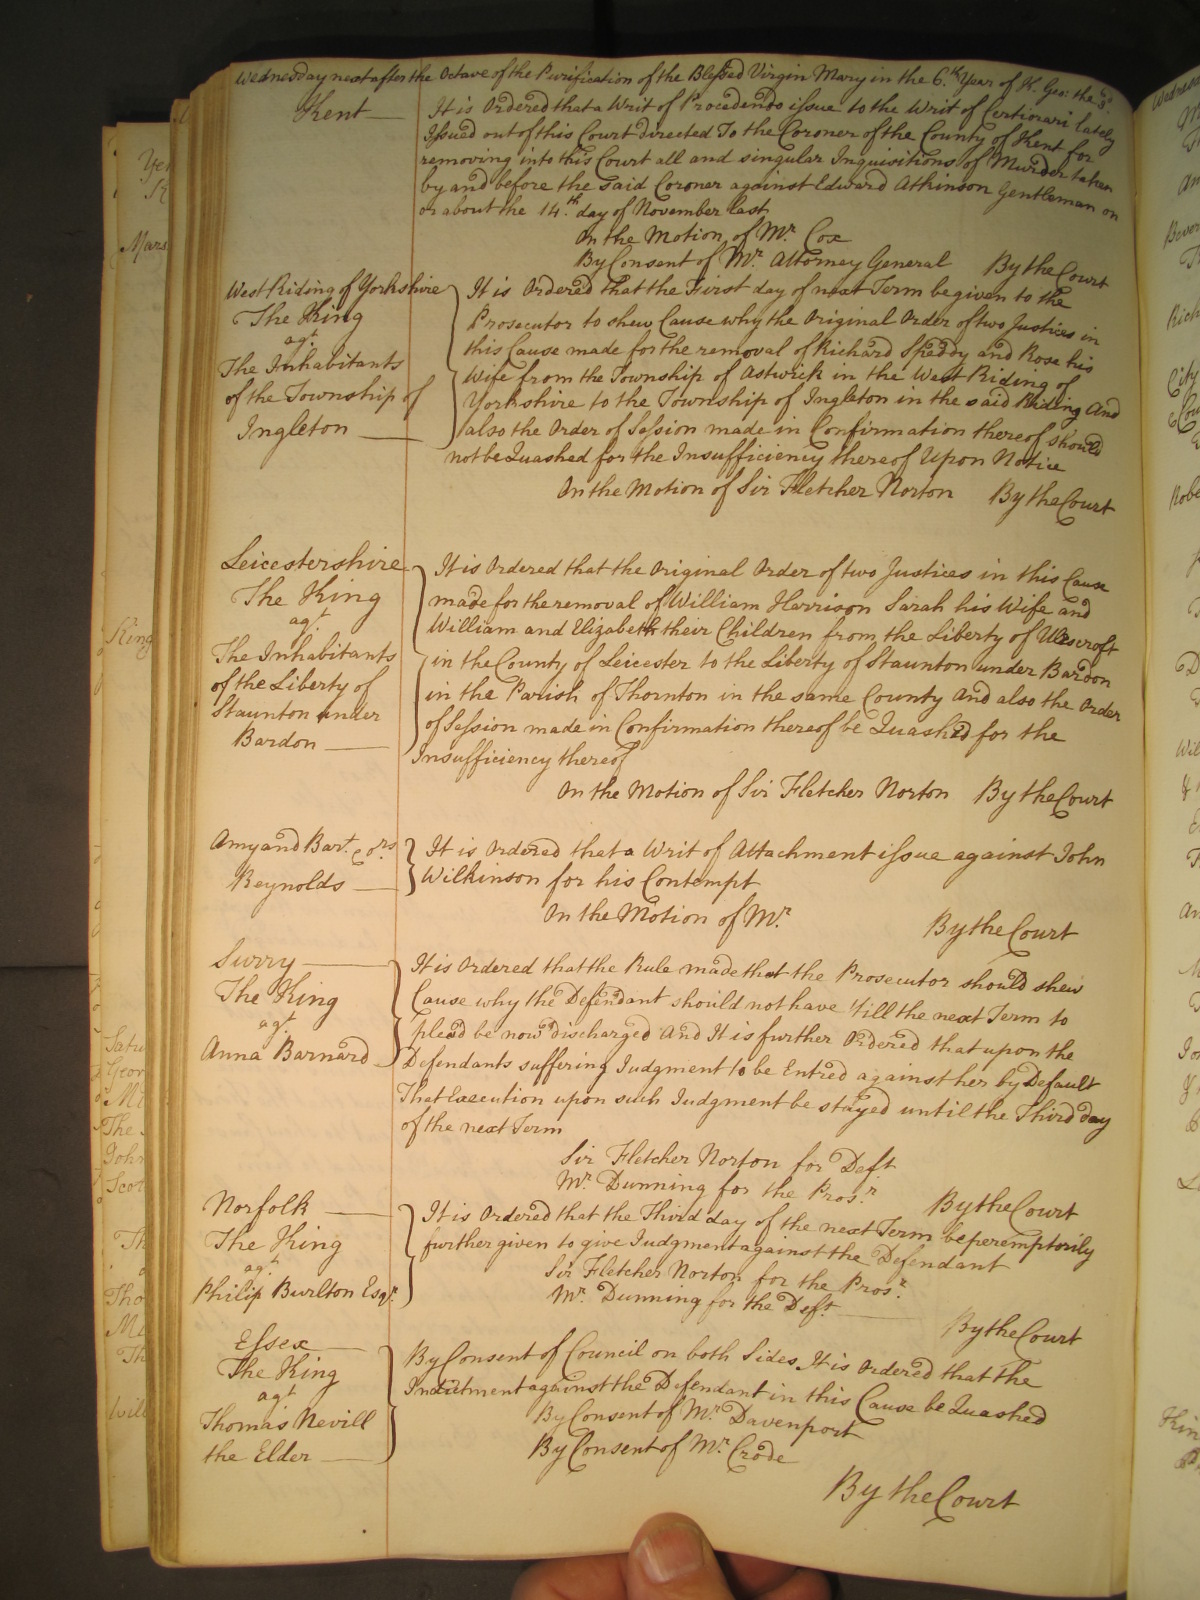 Wednesday next after the Octave of the Purification of the Blessed Virgin Mary in the 6.th Year of K. Geo: the 3.d
Kent
It is Ordered that a Writ of Procedendo issue to the Writ of Certiorari lately
Issued out of this Court directed To the Coroner of the County of Kent for
removing into this Court all and singular Inquisitions of Murder taken
by and before the said Coroner against Edward Atkinson Gentleman on
or about the 14.th day of November last
On the Motion of Mr. Cox
By Consent of Mr. Attorney General By the Court
West Riding of Yorkshire
The King
agt.
The Inhabitants
of the Township of
Ingleton
It is Ordered that the First day of next Term be given to the
Prosecutor to shew Cause why the Original Order of two Justices in
this Cause made for the removal of Richard Speddy and Rose his
Wife from the Township of Astwick in the West Riding of
Yorkshire to the Township of Ingleton in the said Riding And
also the Order of Session made in Confirmation thereof should
not be Quashed for the Insufficiency thereof Upon Notice
On the Motion of Sir Fletcher Norton By the Court
Leicestershire
The King
agt.
The Inhabitants
of the Liberty of
Staunton under
Bardon
It is Ordered that the Original Order of two Justices in this Cause
made for the removal of William Harrison Sarah his Wife and
William and Elizabeth their Children from the Liberty of Ulvescroft
in the County of Leicester to the Liberty of Staunton under Bardon
in the Parish of Thornton in the same County And also the Order
of Session made in Confirmation thereof be Quashed for the
Insufficiency thereof
On the Motion of Sir Fletcher Norton By the Court
Amyand Bart. & ors.
Reynolds
It is Ordered that a Writ of Attachment issue against John
Wilkinson for his Contempt
On the Motion of Mr.
By the Court
Surry
The King
agt.
Anna Barnard
It is Ordered that the Rule made that the Prosecutor should shew
Cause why the Defendant should not have till the next Term to
plead be now discharged And It is further Ordered that upon the
Defendants suffering Judgment to be Entred against her by Default
That Execution upon such Judgment be stayed until the Third day
of the next Term
Sir Fletcher Norton for Deft.
Mr. Dunning for the Prosr.
By the Court
Norfolk
The King
agt.
Philip Burlton Esqr.
It is Ordered that the Third day of the next Term be peremptorily
further given to give Judgment against the Defendant
Sir Fletcher Norton for the Prosr.
Mr. Dunning for the Deft.
By the Court
Essex
The King
agt
Thomas Nevill
the Elder
By Consent of Council on both Sides It is Ordered that the
Indictment against the Defendant in this Cause be Quashed
By Consent of Mr. Davenport
By Consent of Mr. Crode
By the Court